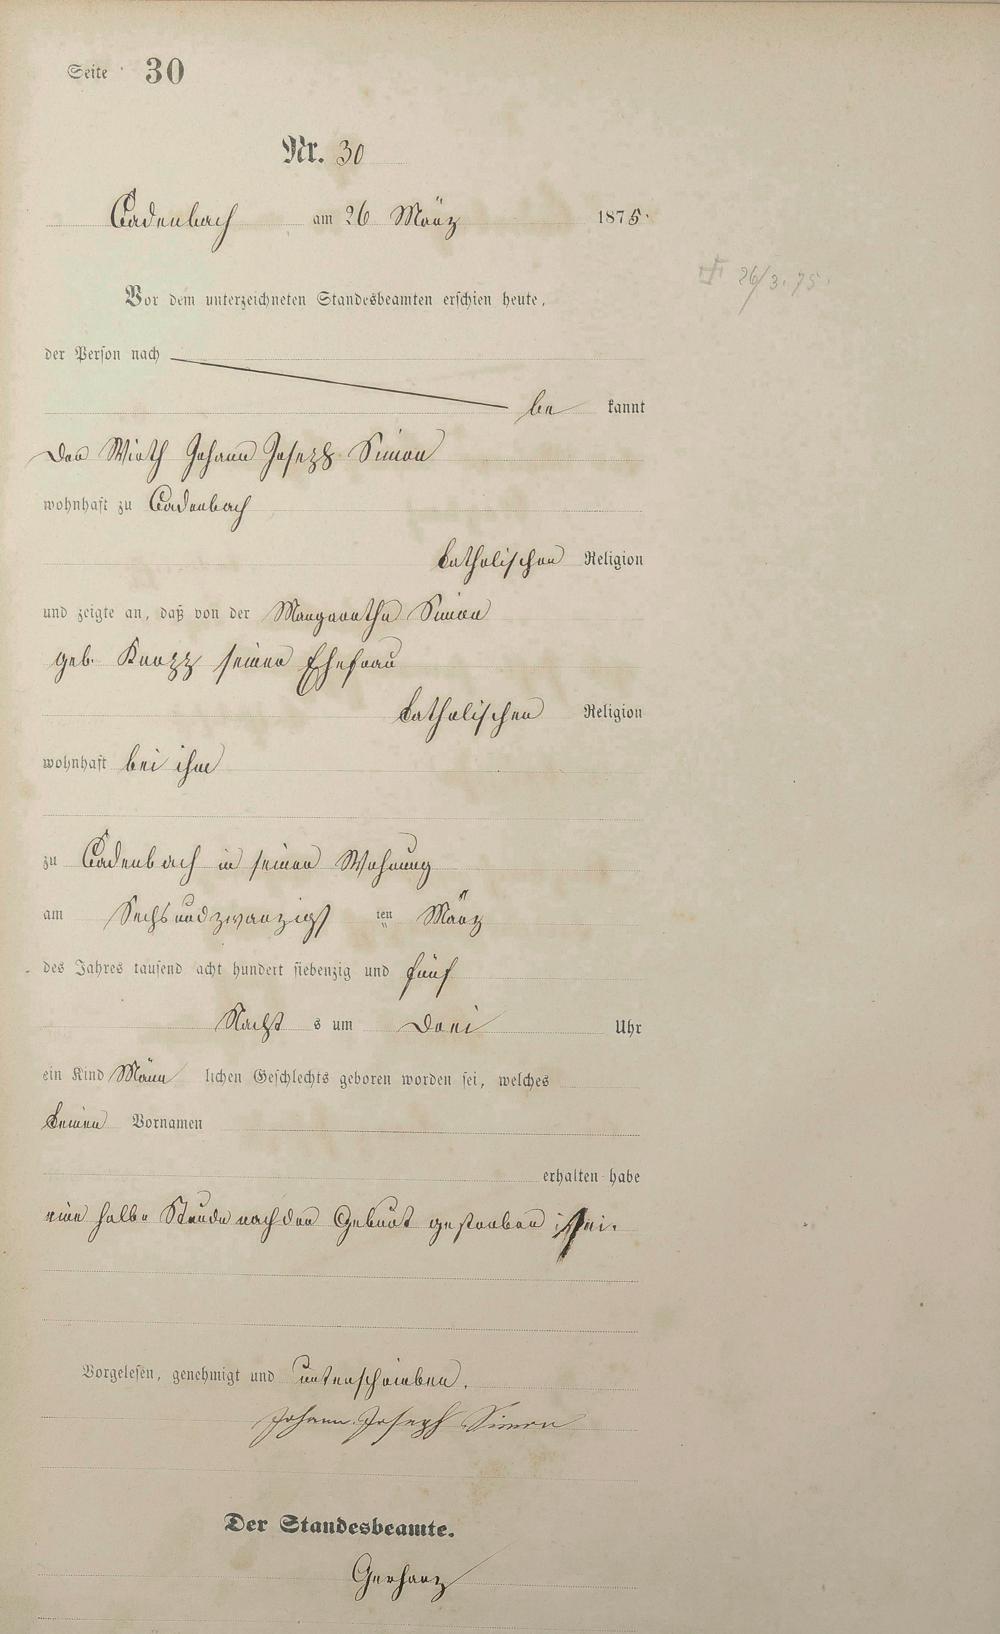 Seite 30
Nr. 30
Cadenbach am 26 März 1875.
26/3. 75.
Vor dem unterzeichneten Standesbeamten erschien heute,
der Person nach
be kannt
Der Wirth Johann Joseph Simon
wohnhaft zu Cadenbach
katholischer Religion
und zeigte an, daß von der Margaretha Simon
geb. Knopp seiner Ehefrau
katholischen Religion
wohnhaft bei ihm
zu Cadenbach in seiner Wohnung
am Sechsundzwanzigst ten März
des Jahres tausend acht hundert siebenzig und fünf
Nacht s um Drei Uhr
ein Kind Männ lichen Geschlechts geboren worden sei, welches
keinen Vornamen
erhalten habe
eine halbe Stunde nach der Geburt gestorben sei.
Vorgelesen, genehmigt und unterschrieben.
Johann Joseph Simon
Der Standesbeamte.
Gerharz